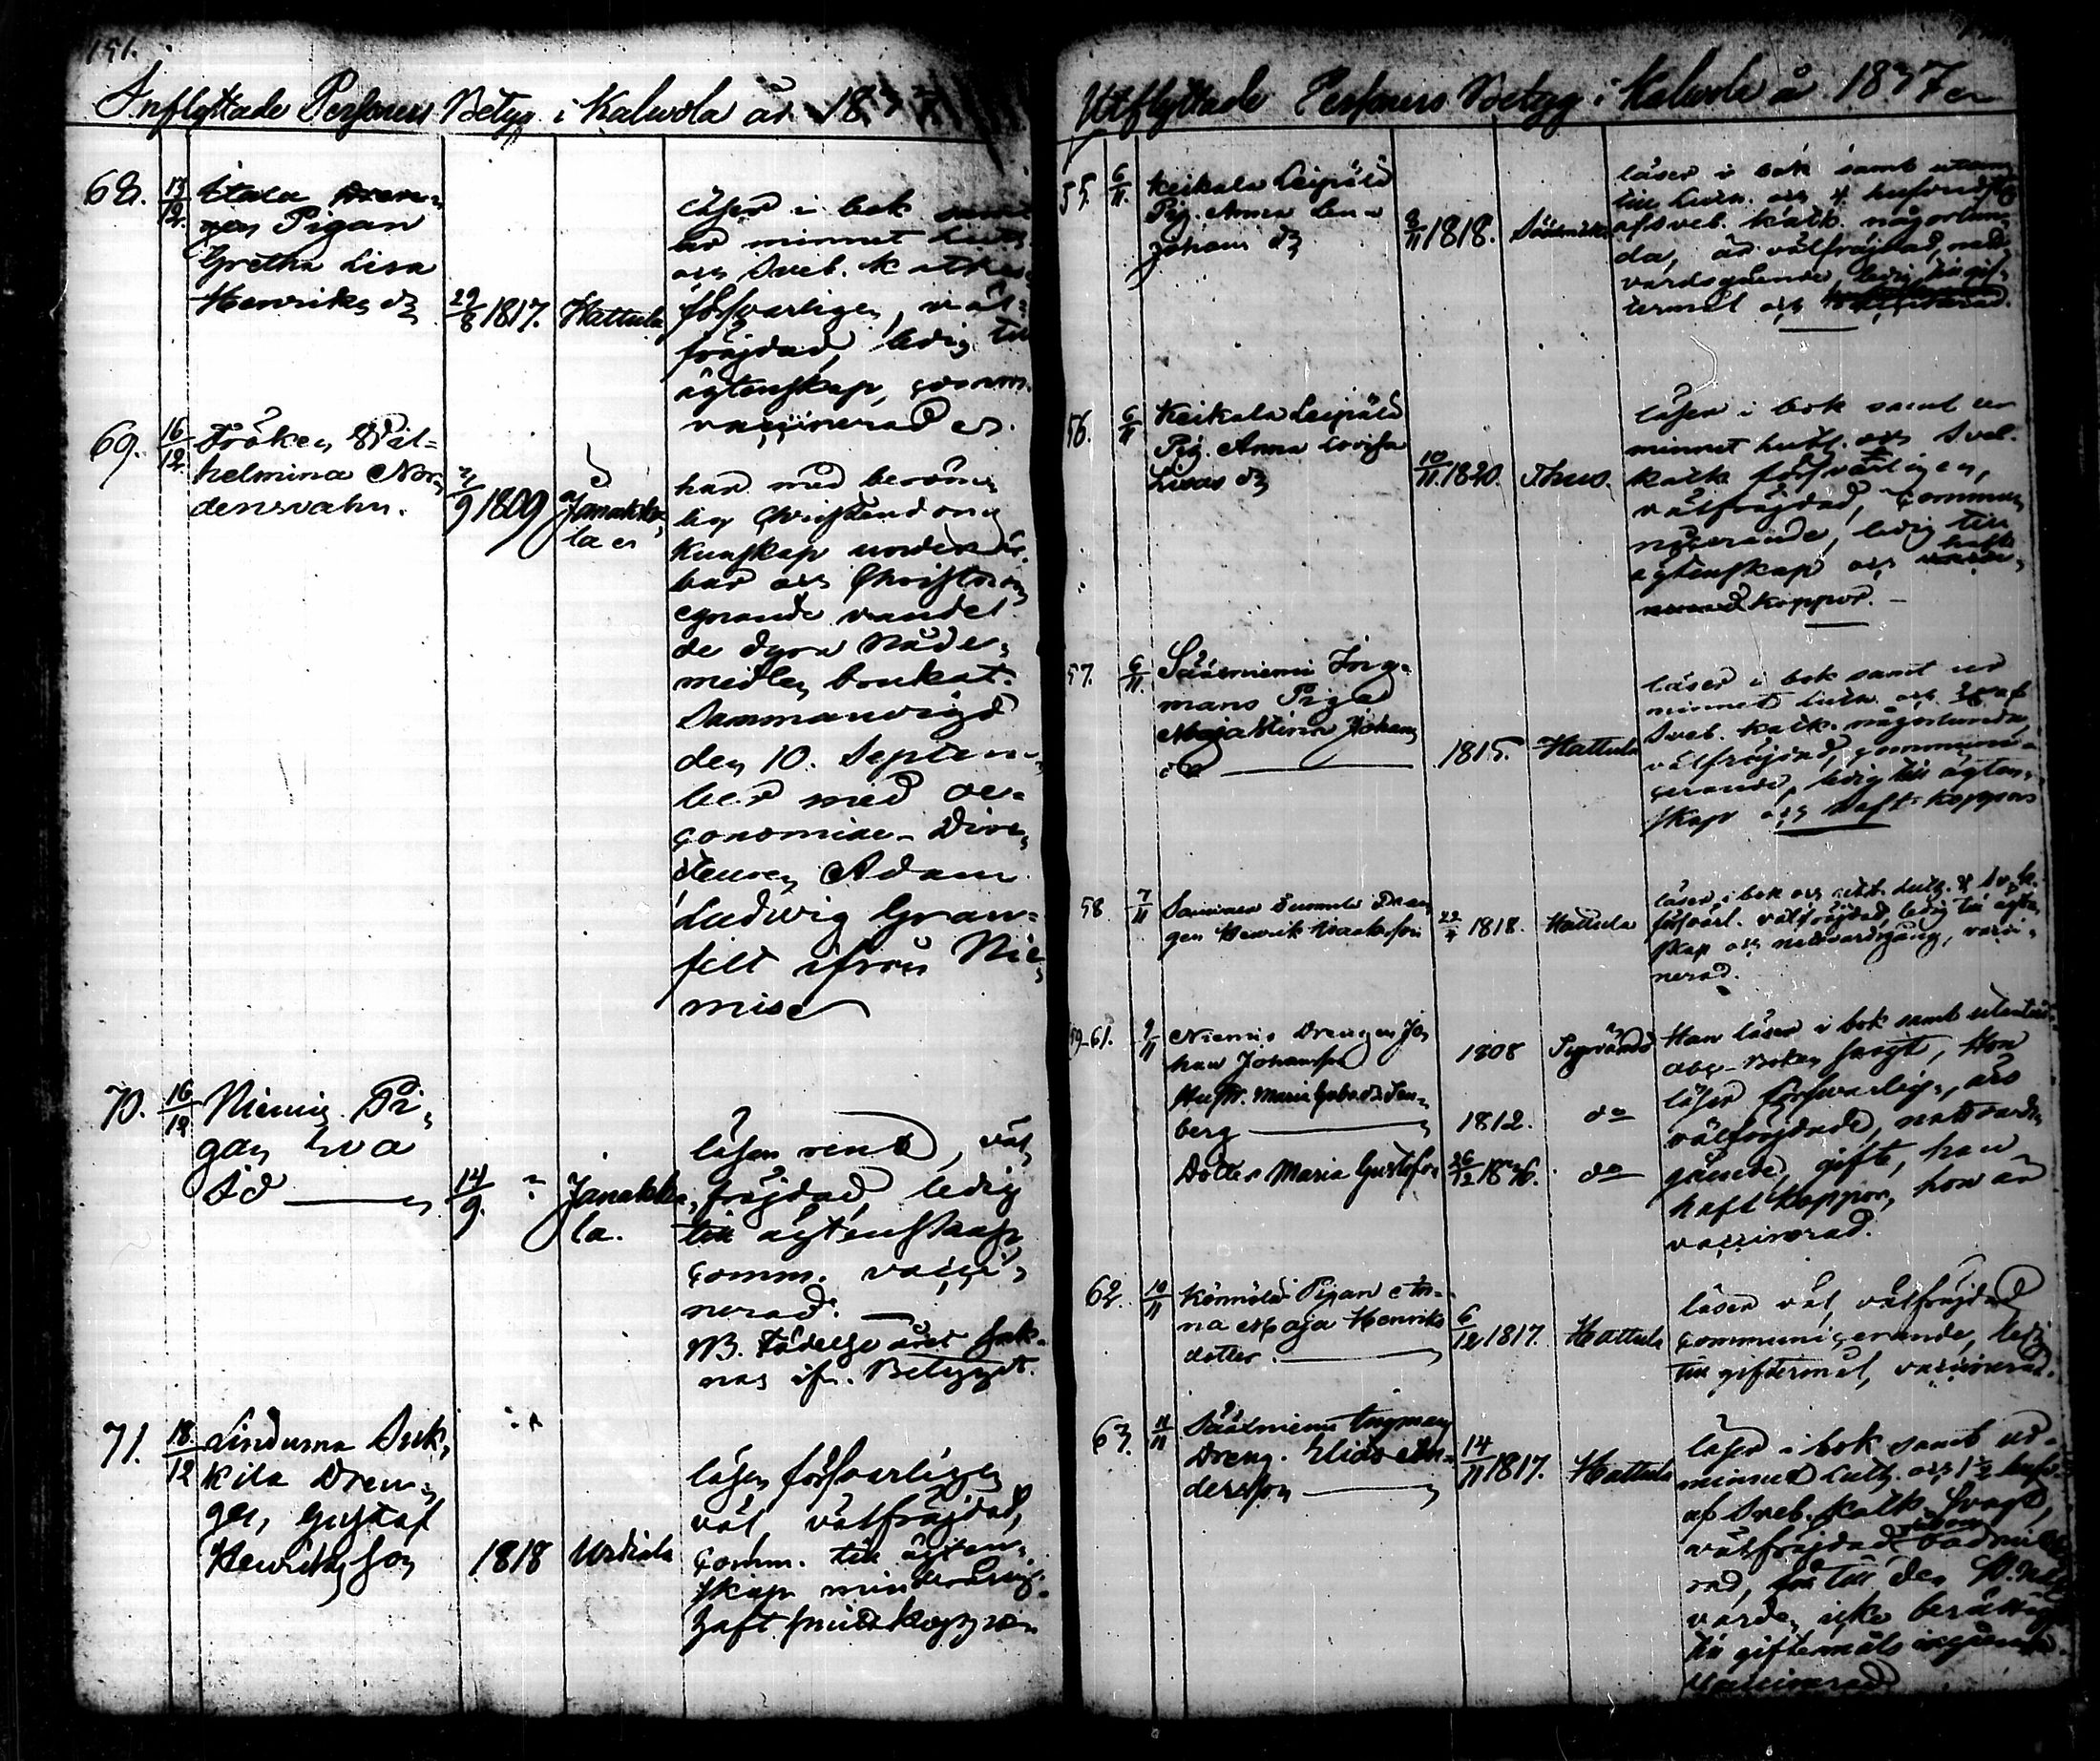 191.
Inflyttade Personers Betyg i Kalwola år 1837
68. 13/12 Itala Dren-
gen Pigan
Gretha Lisa
Henriks dr
29/8 1817. Hattula
läser i bok samt
ur minnet Luth.
och Sveb. Katke
försvarligen, väl-
fräjdad, ledig till
ägtenskap, comm.
vaccinerad
69. 16/12 Fröken Wil-
helmina Nor-
densvahn.
2/9 1809 Janakka-
la
har med beröm-
lig Christendoms
kunskap
bar och Christnom
egnande vandel
de dyra Nåde-
medlen brukat.
Sammanvigd
den 10. Septem-
ber med oe-
conomiae-Direc-
teuren Adam
Ludvig Gran-
felt ifrån Nie-
mis
70. 16/12 Niemis Pi-
gan Eva
Id
14/9. ? Janakka-
la.
läser rent, väl-
fräjdad ledig
till ägtenskap
comm. vacci-
nerad.
NB. Födelse året sak-
nas ifr. Betyget.
71. 18/12 Linduma Suk-
kila Dren-
gen, Gustaf
Henriksson
1818 Urdiala
läser försvarligen
väl, välfräjdad,
comm. till ägten-
skap minderårig.
haft småkoppor
Utflyttade Personers Betyg i Kalwola år 1837
55. 6/11. Keikala Leipälä
Pig. Anna Lena
Johans dr
2/11 1818. Sääxmäki
läser i bok samt utan-
till Luth. och 4 hufvudst.
af Sveb. katk. någorlun-
da, är välfräjdad, natt-
vardsgående ledig till gif-
termål och
56. 6/11 Keikala Leipälä
Pig. Anna Lovisa
Lucas dr
10/11 1820. Thus.
läser i bok samt ur
minnet Luth. och Sveb.
katk försvarligen,
välfräjdad, commu-
nicerande, ledig till
ägtenskap och haft
koppor.
57. 6/11. Sääxniemi Ing-
mans Piga
Maja Stina Johans
dr
1815. Hattula
läser i bok samt ur
minnet Luth. och
Sveb. katk. någorlunda,
välfräjdad, communi-
cerande, ledig till ägten-
skap och haft koppor
58. 7/11 Dren-
gen Henrik Isaaksson
22/4 1818. Hattula
läser i bok och utt. Luth. & Sv. k.
försvarl. välfräjdad, ledig till ägten-
skap och nattvardsgång, vacci-
nerad.
59-61. 9/11 Niemis Drengen Jo-
han Johansson 1808
Hust. Maria Gabr.dr Sten-
berg 1812. do
Dotter Maria Gustafva 26/12 1836. do
Han läser i bok samt utantill
abc-Boken svagt, Hon
läser försvarlig., äro
välfräjdade, nattvards-
gående, gifte, han
haft koppor, hon är
vaccinerad.
62. 10/11 Könnölä Pigan An-
na Maja Henriks
dotter.
6/12 1817. Hattula
läser väl, välfräjdad
communicerande, ledig
till giftermål, vaccinerad.
63. 11/11 Sääxniemi Ingmans
Dreng. Elias An-
dersson
14/11 1817. Hattula
läser i bok samt ur
minnet Luth. och 1 1/2 hufv.
af Sveb. Katk. svagt,
välfräjdad
rad, till den H. Natt-
varden, icke berättigad
till giftermåls ingående.
Vaccinerad